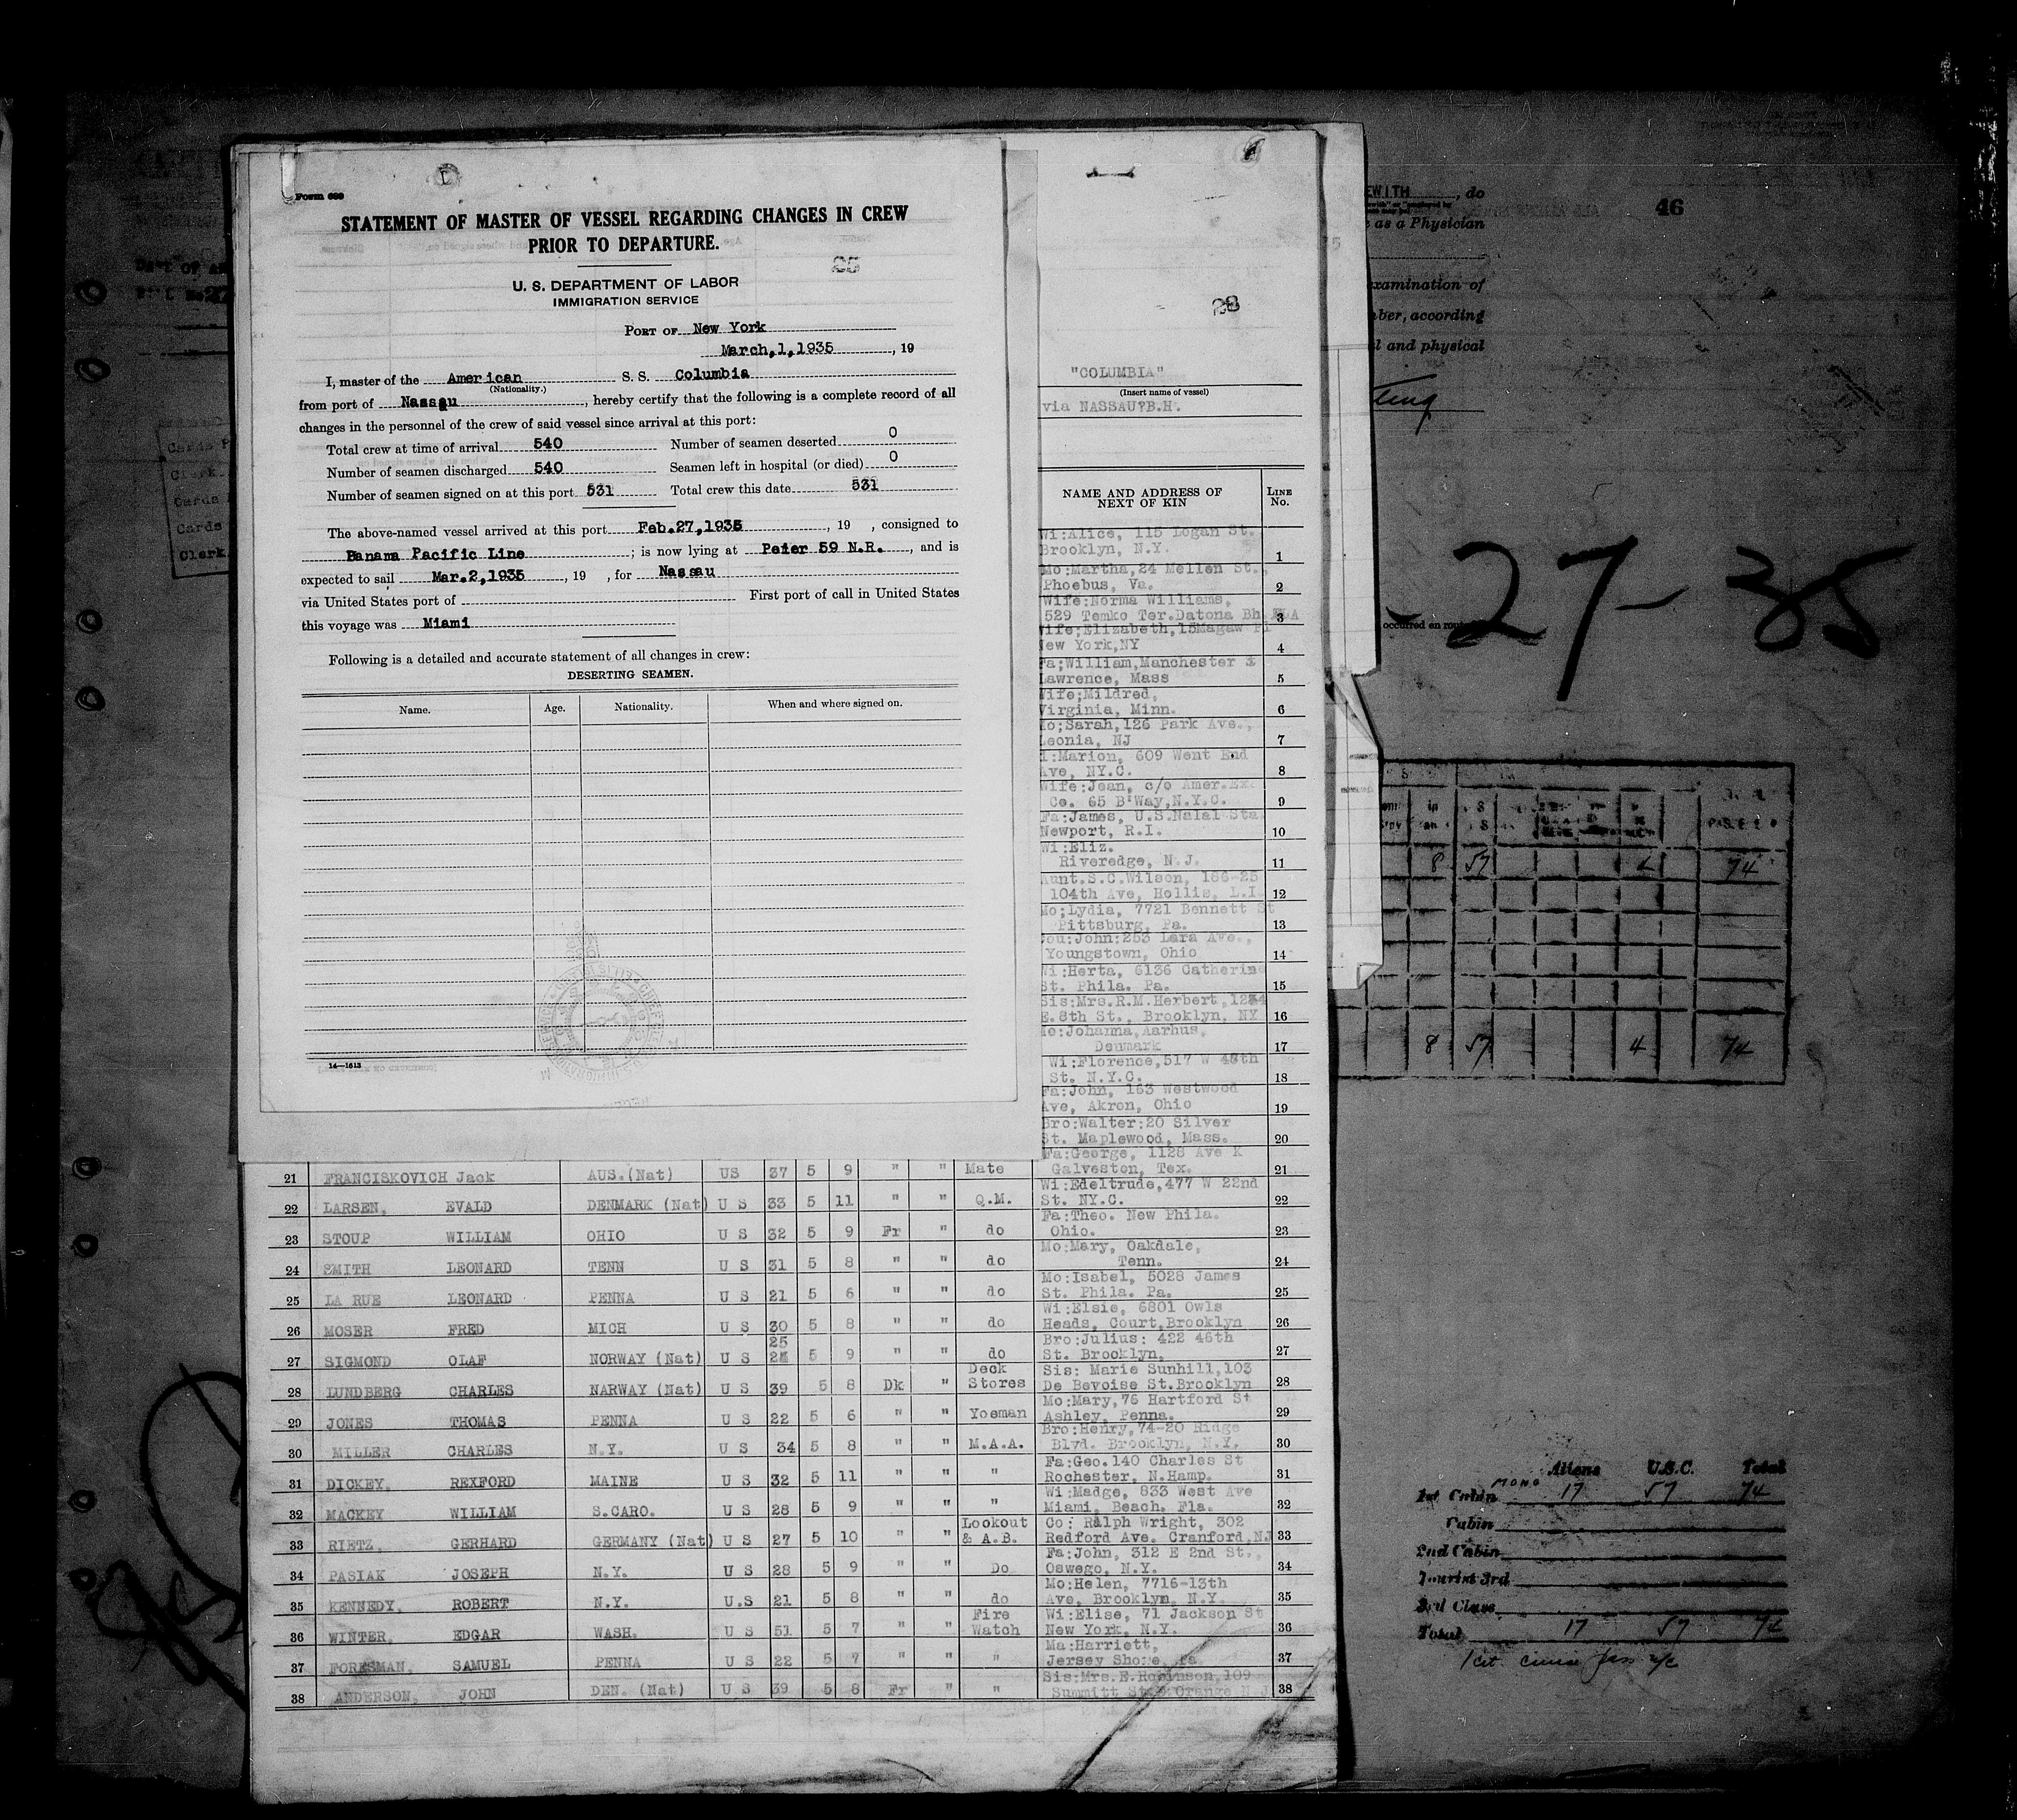 Form 689
STATEMENT OF MASTER OF VESSEL REGARDING CHANGES IN CREW
PRIOR TO DEPARTURE.
25
U. S. DEPARTMENT OF LABOR
IMMIGRATION SERVICE
PORT OF New York
March,1,1935, 19
I, master of the American S. S. Columbia
(Nationality.)
from port of Nassau, hereby certify that the following is a complete record of all
changes in the personnel of the crew of said vessel since arrival at this port:
Total crew at time of arrival 540 Number of seamen deserted 0
Number of seamen discharged 540 Seamen left in hospital (or died) 0
Number of seamen signed on at this port 531 Total crew this date 531
The above-named vessel arrived at this port Feb.27,1935, 19 , consigned to
Banama Pacific Line ; is now lying at Peier 59 N.R., and is
expected to sail Mar.2,1935, 19 , for Nassau
via United States port of First port of call in United States
this voyage was Miami
Following is a detailed and accurate statement of all changes in crew:
DESERTING SEAMEN.
Name. Age. Nationality. When and where signed on.
14—1613
28
"COLUMBIA"
(Insert name of vessel)
via NASSAU?B.H.
NAME AND ADDRESS OF
NEXT OF KIN
LINE
No.
Wi:Alice, 115 Logan St.
Brooklyn, N.Y. 1
Mo:Martha,24 Mellen St.,
Phoebus, Va. 2
Wife:Norma Williams,
529 Temko Ter.Datona Bh FLA 3
Wife;Elizabeth,15Magaw Pl
New York,NY 4
Fa;William,Manchester
Lawrence, Mass 5
Wife;Mildred,
Virginia, Minn. 6
Mo;Sarah,126 Park Ave.,
Leonia, NJ 7
:Marion, 609 Went End
Ave, NY.C. 8
Wife:Jean, c/o Amer.Ex.
Co. 65 B'Way,N.Y.C. 9
Fa:James, U.S.Nalal Sta
Newport, R.I. 10
Wi:Eliz.
Riveredge, N.J. 11
Aunt.S.C.Wilson, 186-25
104th Ave, Hollis, L.I. 12
Mo;Lydia, 7721 Bennett St
Pittsburg, Pa. 13
Cou:John:253 Lara Ave.,
Youngstown, Ohio 14
Wi:Herta, 6136 Catherine
St. Phila. Pa. 15
Sis:Mrs.R.M.Herbert,1234
E.8th St., Brooklyn, NY 16
Mo:Johanna,Aarhus,
Denmark 17
Wi:Florence,517 W 48th
St. N.Y.C. 18
Fa:John, 163 Westwood
Ave, Akron, Ohio 19
Bro:Walter:20 Silver
St. Maplewood, Mass. 20
Fa:George, 1128 Ave K
21 FRANCISKOVICH Jack AUS.(Nat) US 37 5 9 " " Mate Galveston, Tex. 21
Wi:Edeltrude,477 W 22nd
22 LARSEN, EVALD DENMARK (Nat) U S 33 5 11 " " Q.M. St. NY.C. 22
Fa:Theo. New Phila.
23 STOUP WILLIAM OHIO U S 32 5 9 Fr " do Ohio. 23
Mo:Mary, Oakdale,
24 SMITH LEONARD TENN U S 31 5 8 " " do Tenn. 24
Mo:Isabel, 5028 James
25 LA RUE LEONARD PENNA U S 21 5 6 " " do St. Phila. Pa. 25
Wi:Elsie, 6801 Owls
26 MOSER FRED MICH U S 30 5 8 " " do Heads, Court,Brooklyn 26
25 Bro:Julius: 422 46th
27 SIGMOND OLAF NORWAY (Nat) U S 5 9 " " do St. Brooklyn, 27
Deck Sis: Marie Sunhill,103
28 LUNDBERG CHARLES NARWAY (Nat) U S 39 5 8 Dk " Stores De Bevoise St.Brooklyn 28
Mo:Mary,76 Hartford St
29 JONES THOMAS PENNA U S 22 5 6 " " Yoeman Ashley, Penna. 29
Bro:Henry,74-20 Ridge
30 MILLER CHARLES N.Y. U S 34 5 8 " " M.A.A. Blvd. Brooklyn, N.Y. 30
Fa:Geo.140 Charles St
31 DICKEY, REXFORD MAINE U S 32 5 11 " " " Rochester, N.Hamp. 31
Wi:Madge, 833 West Ave
32 MACKEY WILLIAM S.CARO. U S 28 5 9 " " " Miami, Beach. Fla. 32
Lookout Co: Ralph Wright, 302
33 RIETZ, GERHARD GERMANY (Nat) U S 27 5 10 " " & A.B. Redford Ave. Cranford,NJ 33
Fa:John, 312 E 2nd St.,
34 PASIAK JOSEPH N.Y. U S 28 5 9 " " Do Oswego, N.Y. 34
Mo:Helen, 7716-13th
35 KENNEDY, ROBERT N.Y. U.S 21 5 8 " " do Ave, Brooklyn, N.Y. 35
Fire Wi:Elise, 71 Jackson St
36 WINTER, EDGAR WASH. U S 51 5 7 " " Watch New York, N.Y. 36
Ma:Harriett,
37 FORESMAN, SAMUEL PENNA U S 22 5 7 " " " Jersey Shore, Pa 37
Sis:Mrs.E.Robinson,109
38 ANDERSON, JOHN DEN. (Nat) U S 39 5 8 Fr " " Summitt St. Orange N J 38
EWITH, do
46
as a Physician
examination of
ber, according
l and physical
-27-35
occurred en route
8 57 4 74
8 57 4 74
Aliens U.S.C. Total
1st Cabin MONO 17 57 74
Cabin
2nd Cabin
Tourist 3rd
3rd Class
Total 17 57 74
Cards
Clerk
Cards
Cards
Clerk